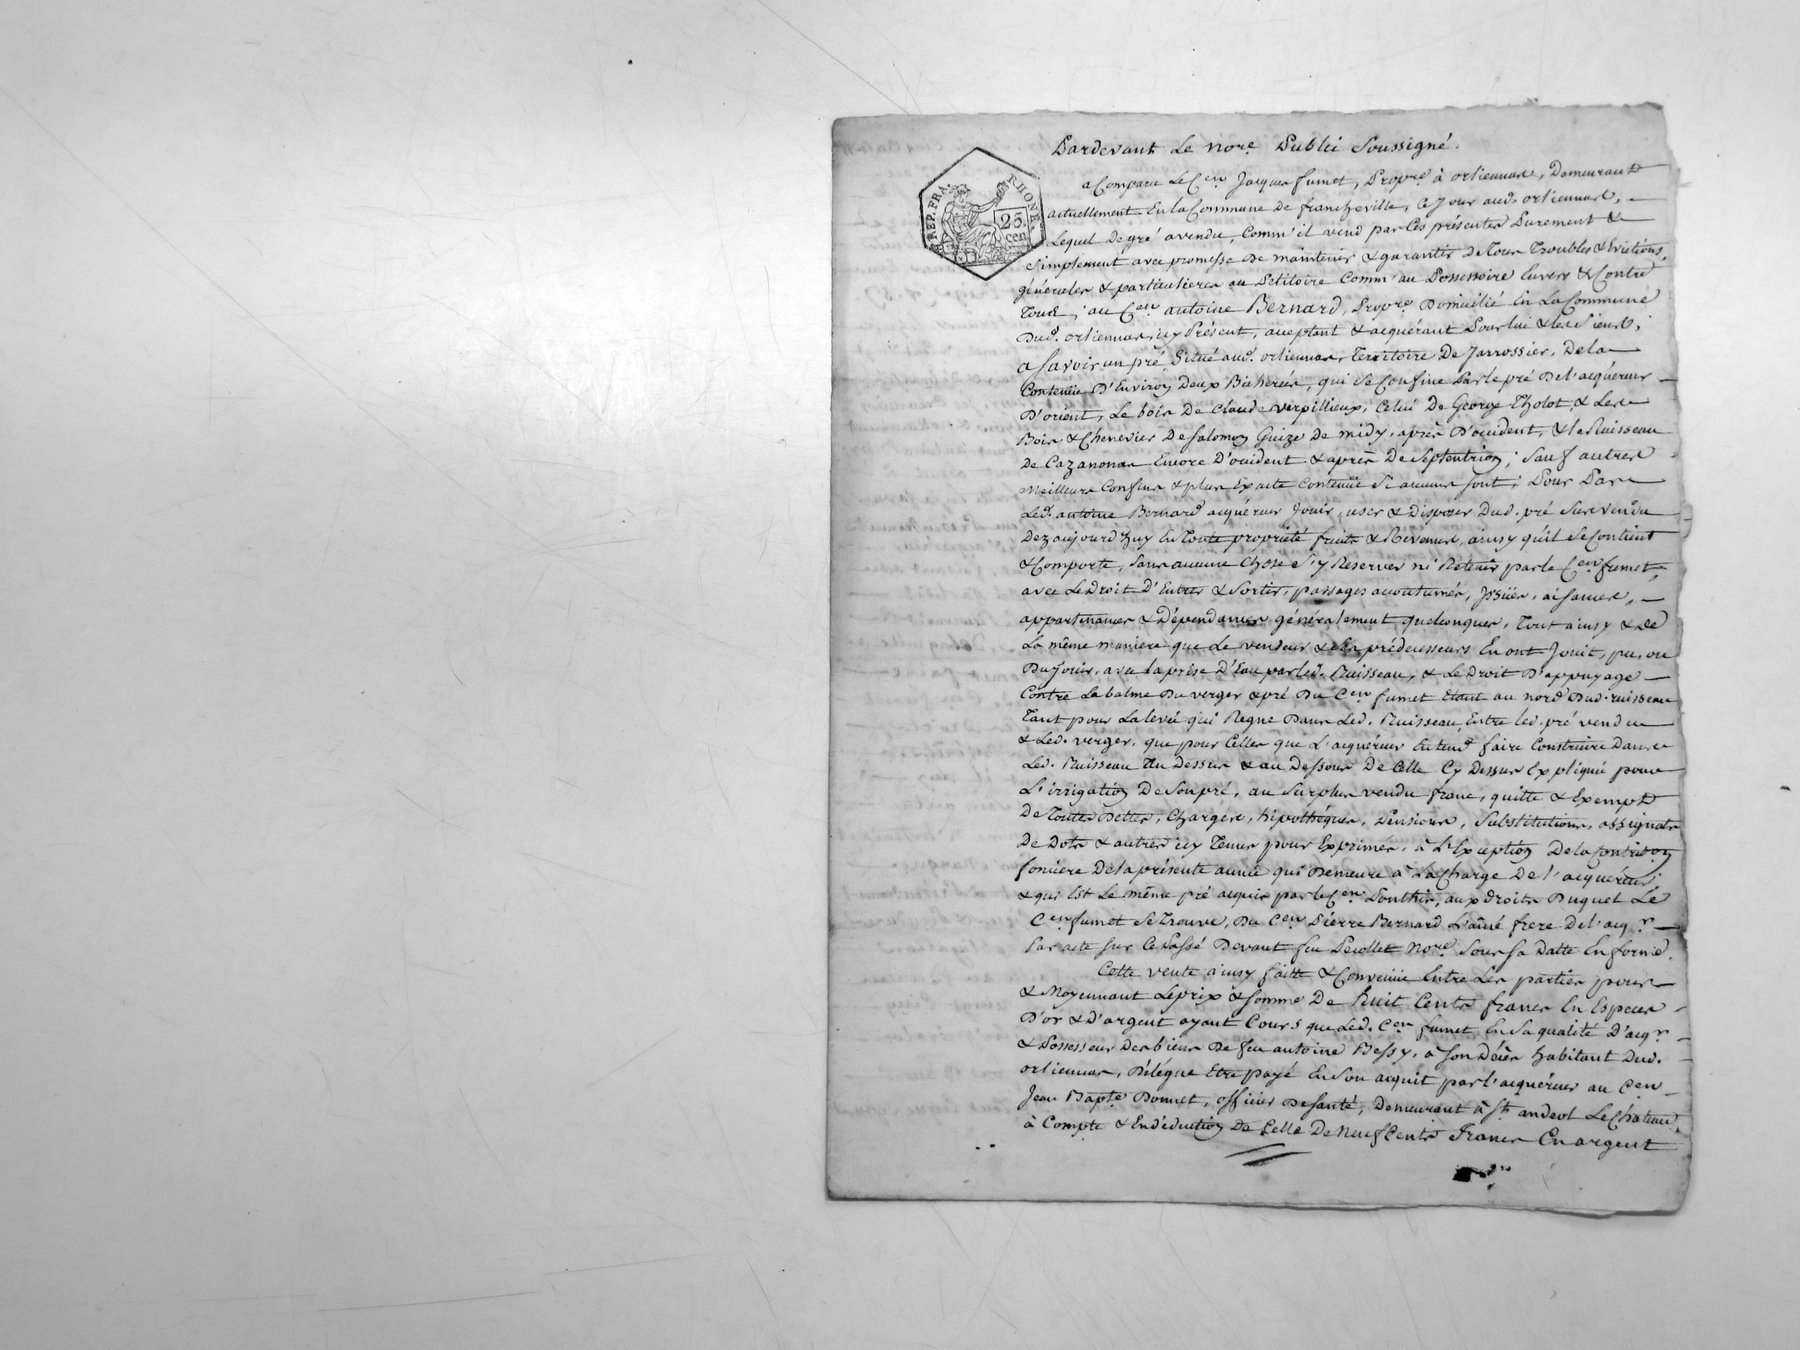 Pardevant Le nore. Public Soussigné.
REP. FRA. RHONE. 25 cen
a Comparu Le Cen. Jacques fumet, Propre. à orlienas, Demeurant
actuellement En la Commune de francheville, Ce Jour aud. orlienas,
Lequel De gré a vendu, Comm' il vend par Ces présentes Purement &
Simplement avec promesse De maintenir & garantir De Tous Troubles & Evictions,
générales & particulieres au Petitoire Comm' au Possessoire Envers & Contre
Tous, au Cen. antoine Bernard, Propre. Domicilié En La Commune
Dud. orlienas, icy Présent, aceptant & acquérant Pour lui & les Siens;
a Savoir un pré, Situé aud. orlienas, Territoire De Jarrossier, De la
Contenue D'Environ Deux Bicherées, qui Se Confine Par le pré De l'acquéreur
D'orient, Le bois De Claude verpillieux, Celui De George Tholot, & Les
Bois & Chenevier De Salomon Guize De midy, après D'occident, & le Ruisseau
De Cazanonas Encore D'occident & après De Septentrion; Sauf autres
Meilleurs Confins & plus Exacte Contenüe Si aucuns Sont; Pour Par
Led. antoine Bernard acquéreur Jouir, user & Disposer Dud. pré Sus vendu
Dez aujourd'huy En Toute propriété fruits & Revenus, ainsy qu'il Se Contient
& Comporte, Sans aucune Chose S'y Reserver ni Retenir par le Cen. fumet,
avec Le Droit D'Entrer & Sortir, passages acoutumés, Jssües, aisances,
appartenances & Dépendances généralement quelconques, Tout ainsy & De
La même maniere que Le vendeur & Ses prédecesseurs En ont Jouit, pu, ou
Du Jouir, avec la prise D'Eau par led. Ruisseau, & Le Droit D'appuyage
Contre La balme Du verger & pré Du Cen. fumet Etant au nord Dud. ruisseau
Tant pour La levée qui Regne Dans Led. Ruisseau Entre led. pré vendu
& Led. verger, que pour Celles que L'acquéreur Entend faire Construire Dans
Led. Ruisseau Au Dessus & au Dessous De Celle Cy Dessus Expliquée pour
L'irrigation De Son pré, au Surplus vendu franc, quitte & Exempt
De Toutes Dettes, Charges, hipothéques, Pensions, Substitutions, assignats
De Dots & autres icy Tenus pour Exprimés, à L'Exception De la Contribon
fonciere De la présente année qui Demeure à La Charge De l'acquéreur;
& qui Est Le même pré acquis par le Cen. Ponthus, aux Droits Duquel Le
Cen. fumet Se Trouve, Du Cen. Pierre Bernard L'ainé frere De l'acqr.
Par acte Sur Ce Passé Devant feu Pecollet Nore. Sous Sa Datte En forme.
Cette vente ainsy faitte & Convenüe Entre Les parties pour
& Moyennant Le prix & Somme De huit Cents francs En Especes
D'or & D'argent ayant Cours que Led. Cen. fumet En Sa qualité D'acqr.
& Possesseur Des biens De feu antoine Bessy, à Son Décès habitant Dud.
orlienas, Délégue Etre payé En Son acquit par l'acquéreur au Cen.
Jean Bapte. Bonnet, officier De Santé, Demeurant à St. andeol Le Chateau,
à Compte & En déduction De Celle De Neuf Cents Francs En argent